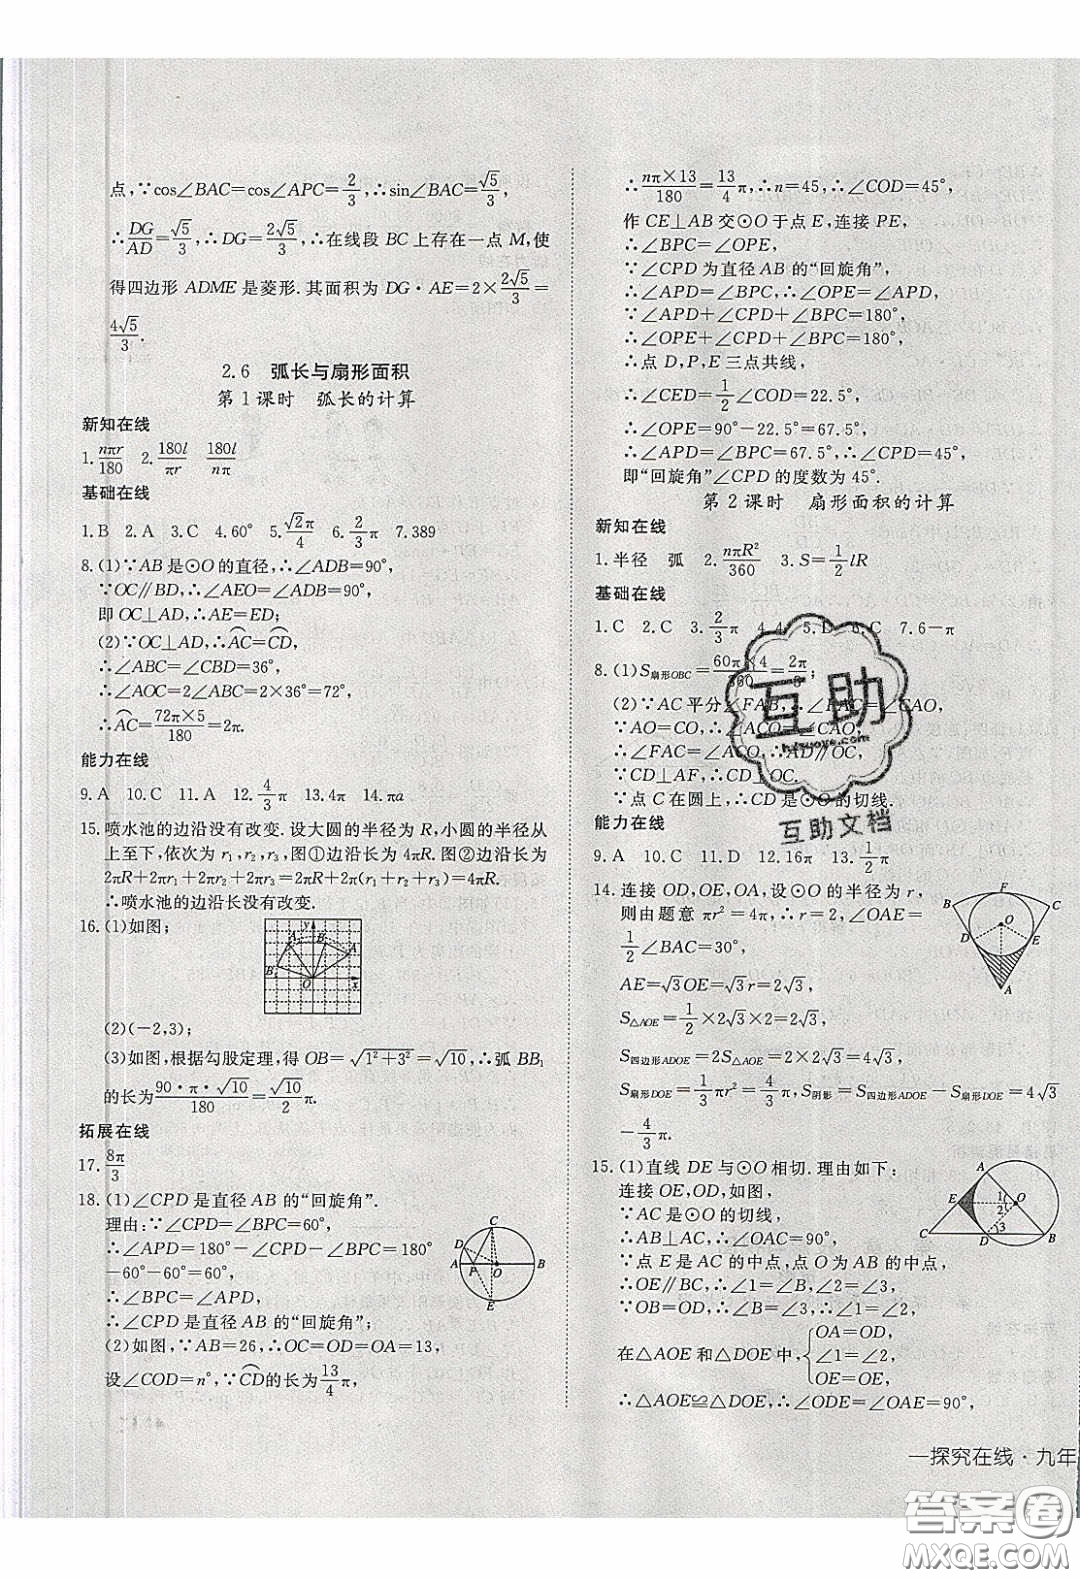 点,∵cos∠BAC=cos∠APC=2/3,∴sin∠BAC=√5/3,
∴DG/AD=√5/3,∴DG=2√5/3.∴在线段BC上存在一点M,使
得四边形ADME是菱形.其面积为DG·AE=2×2√5/3=
4√5/3.
2.6 弧长与扇形面积
第1课时 弧长的计算
新知在线
1.nπr/180 2.180l/πr 180l/nπ
基础在线
1.B 2.A 3.C 4.60° 5.√2π/4 6.2/3π 7.389
8.(1)∵AB是⊙O的直径,∴∠ADB=90°,
∵OC∥BD,∴∠AEO=∠ADB=90°,
即OC⊥AD,∴AE=ED;
(2)∵OC⊥AD,∴⌒AC=⌒CD,
∴∠ABC=∠CBD=36°,
∴∠AOC=2∠ABC=2×36°=72°,
∴⌒AC=72π×5/180=2π.
能力在线
9.A 10.C 11.A 12.4/3π 13.4π 14.πa
15.喷水池的边沿没有改变.设大圆的半径为R,小圆的半径从
上至下,依次为r₁,r₂,r₃,图①边沿长为4πR.图②边沿长为
2πR+2πr₁+2πr₂+2πr₃=2πR+2π(r₁+r₂+r₃)=4πR.
∴喷水池的边沿长没有改变.
16.(1)如图;
y A₁ B A B₁ O x
(2)(-2,3);
(3)如图,根据勾股定理,得OB=√(1²+3²)=√10,∴弧BB₁
的长为90·π·√10/180=√10/2π.
拓展在线
17.8π/3
18.(1)∠CPD是直径AB的“回旋角”.
理由:∵∠CPD=∠BPC=60°,
∴∠APD=180°-∠CPD-∠BPC=180°
-60°-60°=60°,
∴∠BPC=∠APD,
∴∠CPD是直径AB的“回旋角”;
C D A P O B E
(2)如图,∵AB=26,∴OC=OD=OA=13,
设∠COD=n°,∵⌒CD的长为13/4π,
∴nπ×13/180=13/4π,∴n=45,∴∠COD=45°,
作CE⊥AB交⊙O于点E,连接PE,
∴∠BPC=∠OPE,
∵∠CPD为直径AB的“回旋角”,
∴∠APD=∠BPC,∴∠OPE=∠APD,
∵∠APD+∠CPD+∠BPC=180°,
∴∠OPE+∠CPD+∠BPC=180°,
∴点D,P,E三点共线,
∴∠CED=1/2∠COD=22.5°,
∴∠OPE=90°-22.5°=67.5°,
∴∠APD=∠BPC=67.5°,∴∠CPD=45°,
即“回旋角”∠CPD的度数为45°.
第2课时 扇形面积的计算
新知在线
1.半径 弧 2.nπR²/360 3.S=1/2lR
基础在线
1.C 2.C 3.2/3π 4.4 5.D 6.C 7.6-π
8.(1)S扇形OBC=60π×4/360=2π/3;
(2)∵AC平分∠FAB,∴∠FAC=∠CAO,
∵AO=CO,∴∠ACO=∠CAO,
∴∠FAC=∠ACO,∴AD∥OC,
∵CD⊥AF,∴CD⊥OC.
∵点C在圆上,∴CD是⊙O的切线.
能力在线
9.A 10.C 11.D 12.16π 13.1/2π
14.连接OD,OE,OA,设⊙O的半径为r,
则由题意πr²=4π,∴r=2,∠OAE=
1/2∠BAC=30°,
AE=√3OE=√3r=2√3,
S△AOE=1/2×2√3×2=2√3,
B F C O D E A
S四边形ADOE=2S△AOE=2×2√3=4√3,
S扇形DOE=1/3πr²=4/3π,S阴影=S四边形ADOE-S扇形DOE=4√3
-4/3π.
15.(1)直线DE与⊙O相切.理由如下:
连接OE,OD,如图,
∵AC是⊙O的切线,
∴AB⊥AC,∴∠OAC=90°,
∵点E是AC的中点,点O为AB的中点,
∴OE∥BC,∴∠1=∠B,∠2=∠3,
∵OB=OD,∴∠B=∠3,∴∠1=∠2,
A E O 1 2 3 C D B
在△AOE和△DOE中,{OA=OD,
∠1=∠2,
OE=OE,
∴△AOE≌△DOE,∴∠ODE=∠OAE=90°,
一探究在线·九年
互助
hzsuoye.com
互助文档
答案圈
MXQE.COM